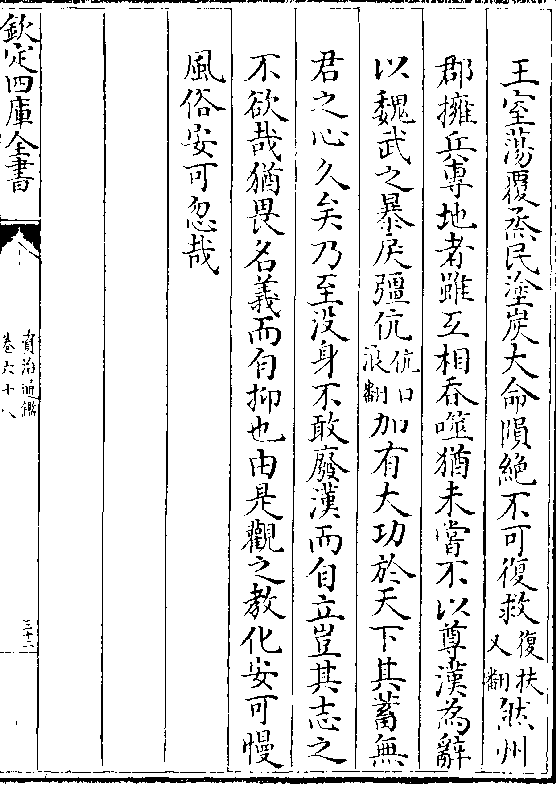 王室蕩覆烝民塗炭大命隕絕不可復救復扶又翻然州
郡擁兵專地者雖互相吞噬猶未嘗不以尊漢為辭
以魏武之暴戾彊伉伉口浪翻加有大功於天下其蓄無
君之心久矣乃至没身不敢廢漢而自立豈其志之
不欲哉猶畏名義而自抑也由是觀之教化安可慢
風俗安可忽哉
欽定四庫全書
資治通鑑
卷六十八
三十二